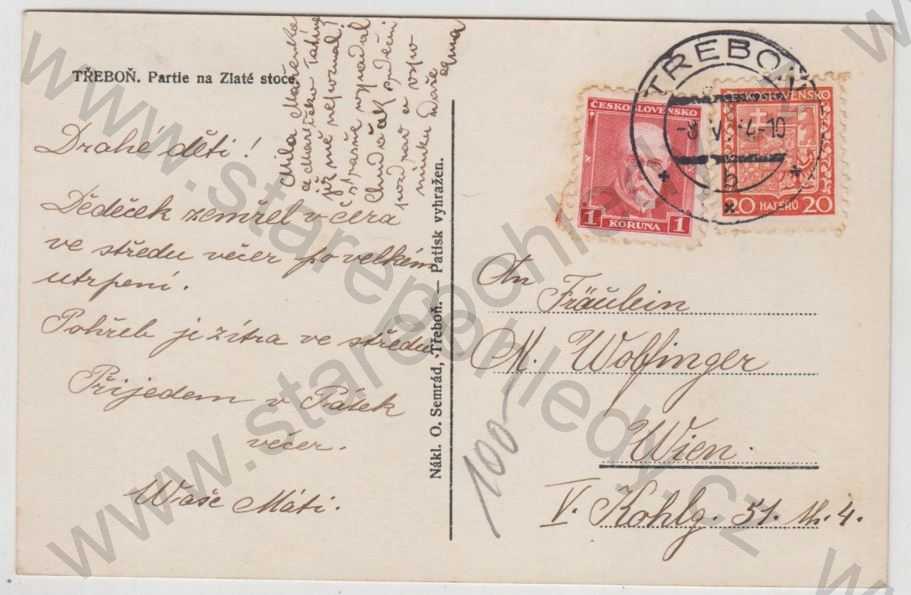 TŘEBOŇ. Partie na Zlaté stoce.
Drahé děti!
Dědeček zemřel včera
ve středu večer po velkém
utrpení.
Pohřeb je zítra ve středu
Přijedem v Pátek
večer.
Waše Máti.
Milá Mařenko
a
již mě nepoznal!
strašně vypadal
Chudák
pozdrav a vzpo
mínku Vaše
Nákl. O. Semrád, Třeboň. — Patisk vyhražen.
ČESKOSLOVENSKO
1 KORUNA 1
ČESKOSLOVENSKO
20 HALÉŘŮ 20
TŘEBOŇ
b
An
Fräulein
M. Wolfinger
Wien.
V. Kohlg. 51. th. 4.
100-
www.starepohledy.cz